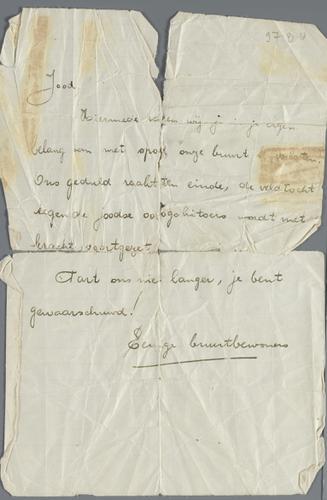 Jood
Hiermede raden wij je in je eigen
belang aan met spoed onze buurt te verlaten.
Ons geduld raakt ten einde, de veldtocht
tegen de joodse oorlogshitsers wordt met
kracht voortgezet.
Tart ons niet langer, je bent
gewaarschuwd!
Eenige buurtbewoners